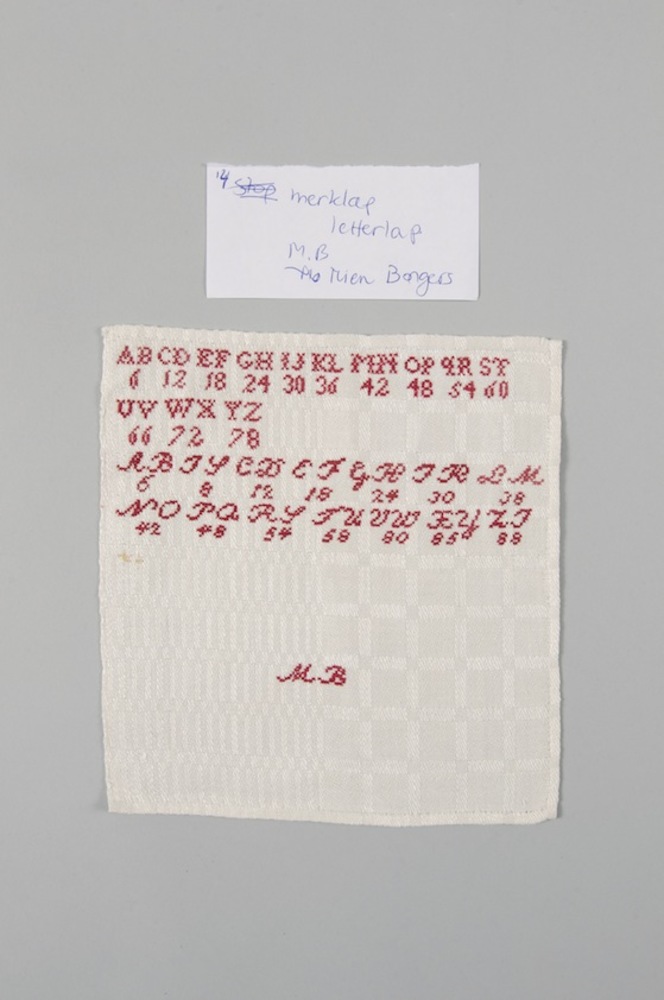 '4 merklap
letterlap
M.B
Mien Bongers
AB CD EF GH IJ KL MN OP QR ST
6 12 18 24 30 36 42 48 54 60
UV WX YZ
66 72 78
AB IS CD EF GH IK LM
6 8 12 18 24 30 38
NO PQ RS TU VW XY ZI
42 48 54 58 80 85 88
M.B